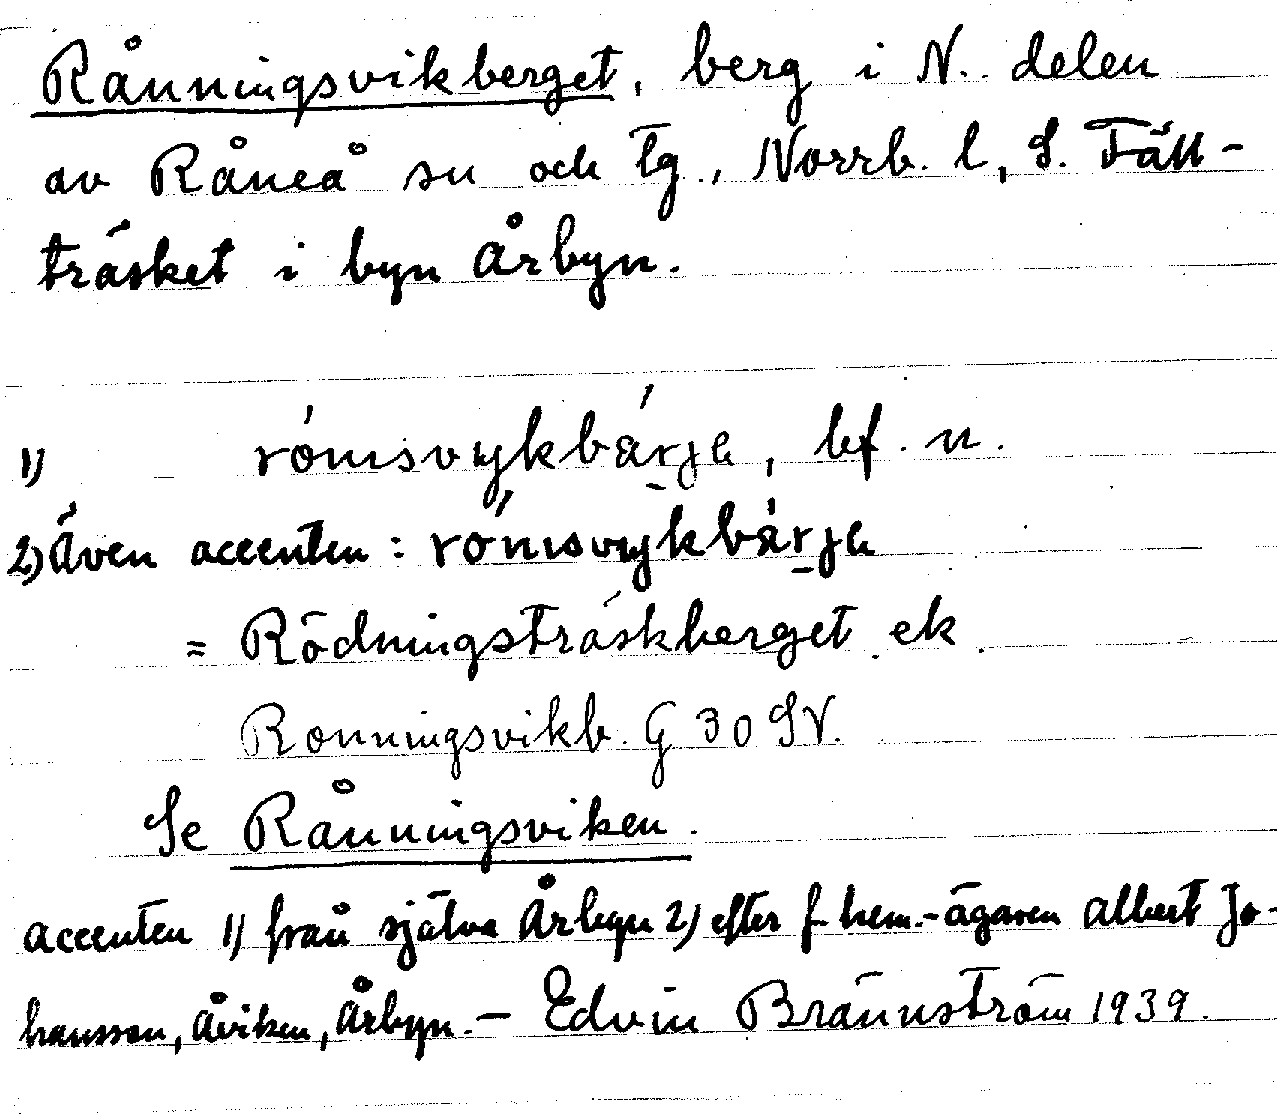 Rånningsvikberget, berg i N. delen
av Råneå sn och tg., Norrb. l, S. Fäll-
träsket i byn Årbyn.
1) bf. n.
2) Även accenten:
= Rödningsträskberget ek
Ronningsvikb. G 30 SV.
Se Rånningsviken.
accenten 1) från själva Årbyn 2) efter f. hem.-ägaren Albert Jo-
hansson, Åviken, Årbyn. – Edvin Brännström 1939.